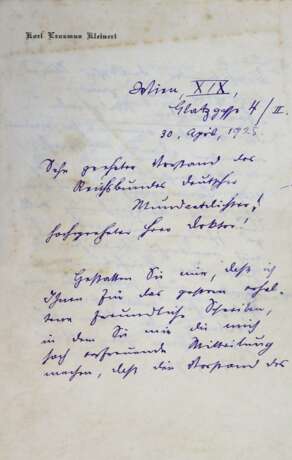 Karl Erasmus Kleinert
Wien, XIX,
Glatzgasse 4/II.
30. April, 1925
Sehr geehrter Vorstand des
Reichsbundes deutscher
Mundartdichter!
Hochgeehrter Herr Doktor!
Gestatten Sie mir, daß ich
Ihnen für das gestern erhal-
tene freundliche Schreiben,
in dem Sie mir die mich
hoch erfreuende Mitteilung
machen, daß der Vorstand des